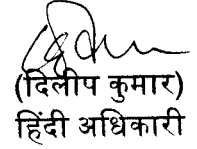 (दिलीप कुमार)
हिंदी अधिकारी